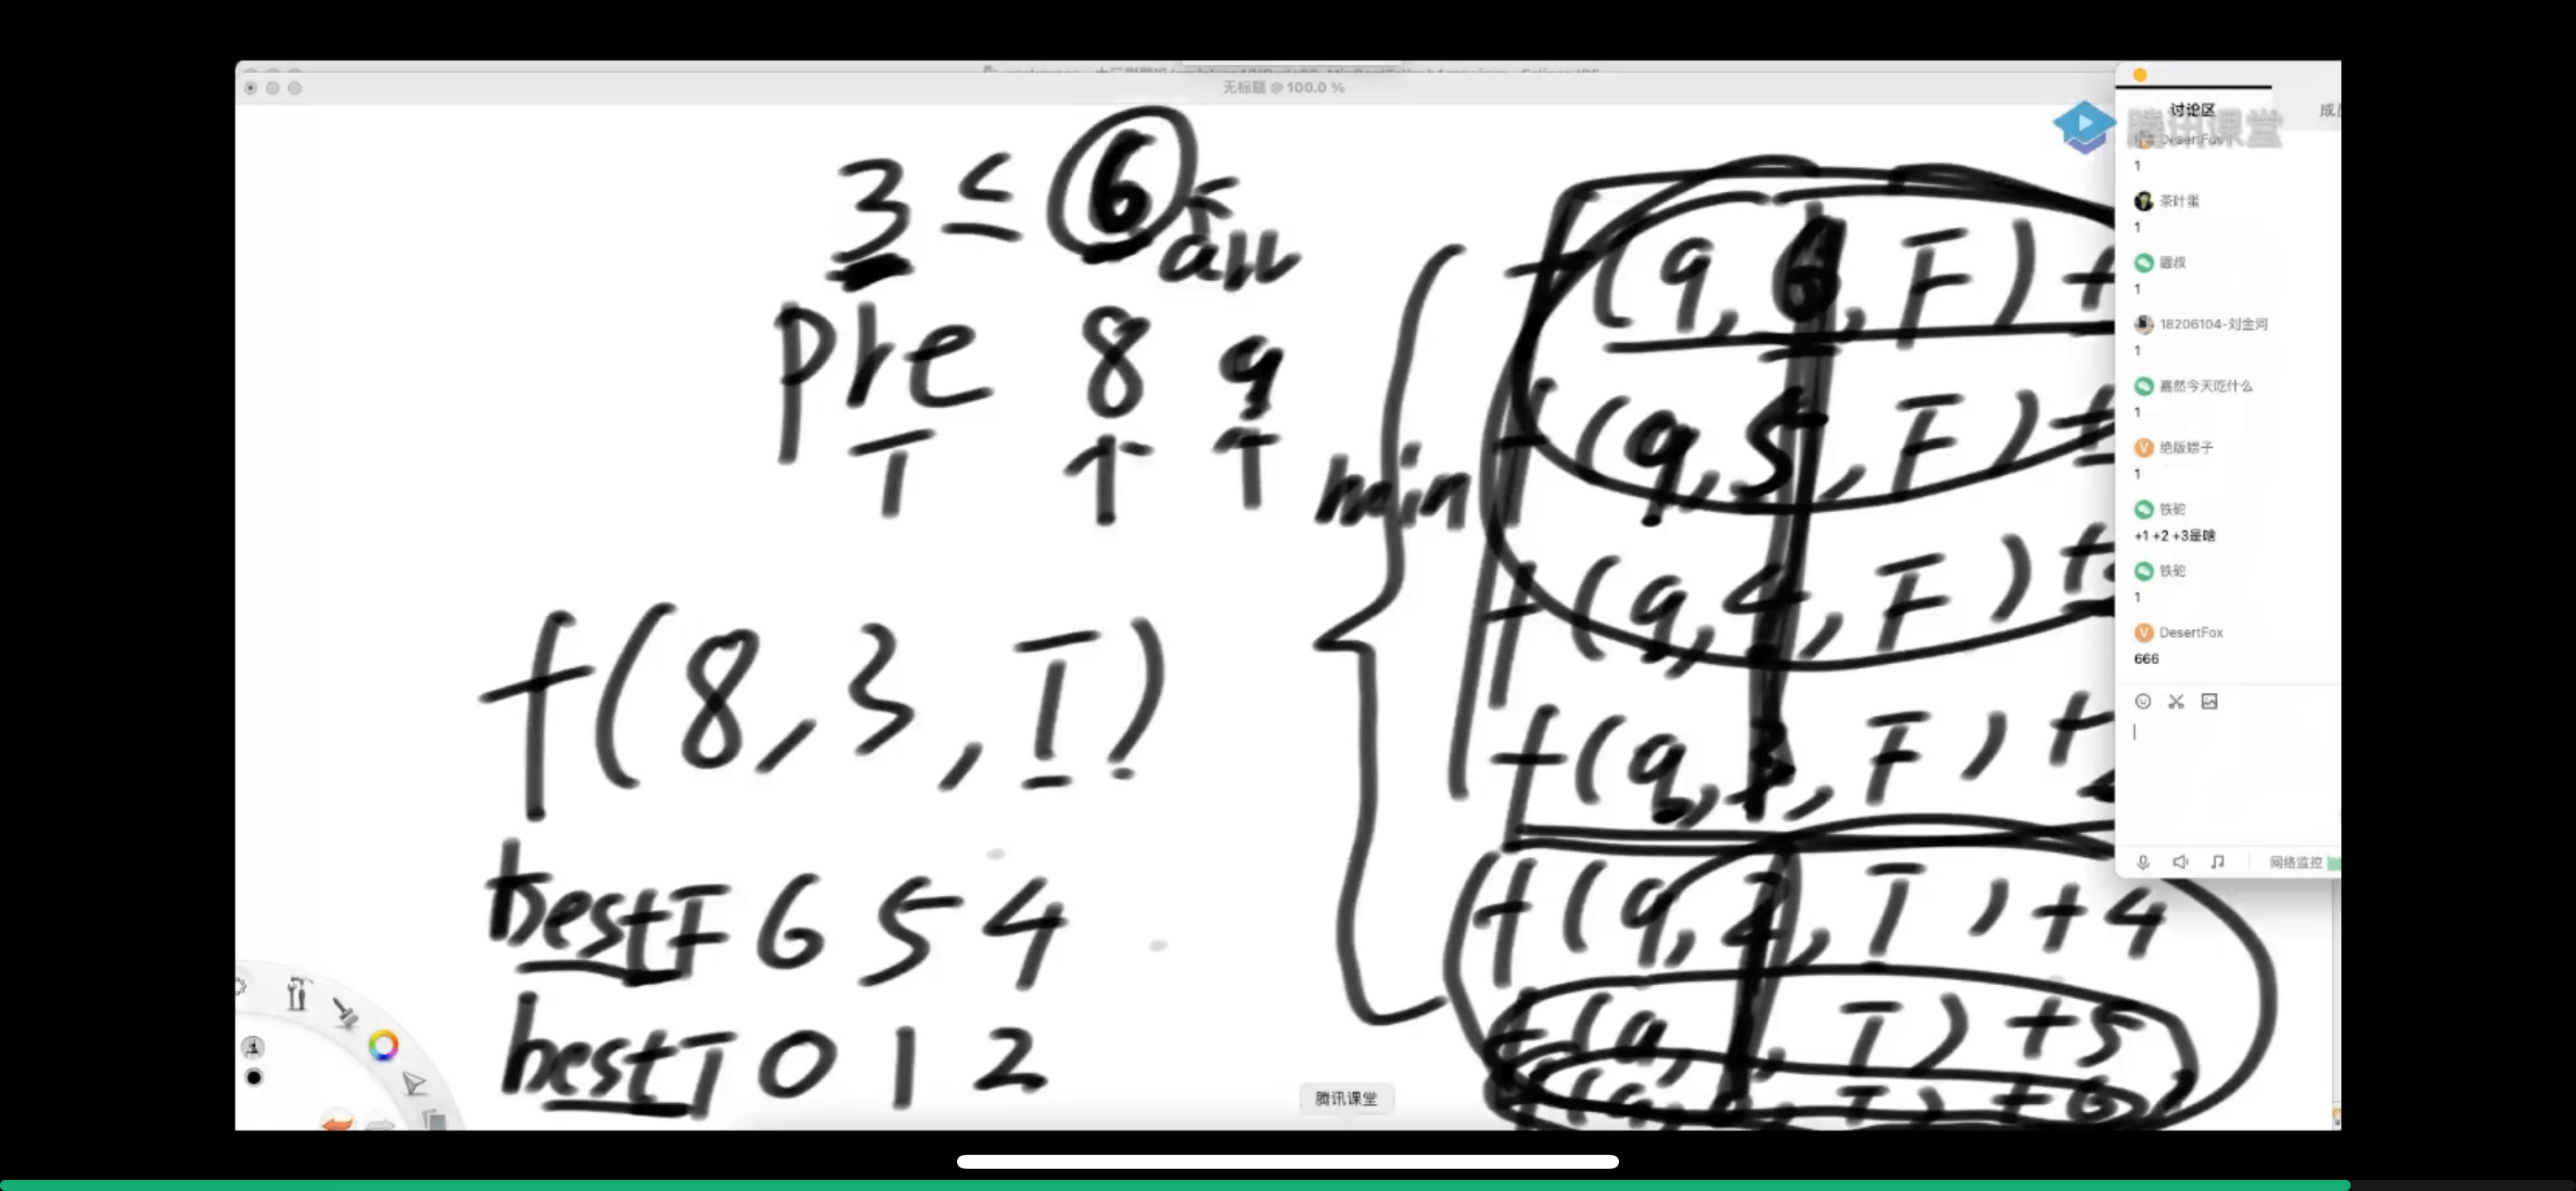 无标题 @ 100.0 %
3 ≤ 6 ≤
all
Pre 8 9
T ↑ ↑
min
f(8, 3, T)
bestF 6 5 4
bestT 0 1 2
f(9, 6, F) +
f(9, 5, F) +
f(9, 4, F) +
f(9, 3, F) +
f(9, 2, T) + 4
T) + 5
T) + 6
腾讯课堂
腾讯课堂
讨论区
DesertFox
1
茶叶蛋
1
1
18206104-刘金河
1
嘉然今天吃什么
1
绝版娚子
1
铁砣
+1 +2 +3是啥
铁砣
1
DesertFox
666
网络监控